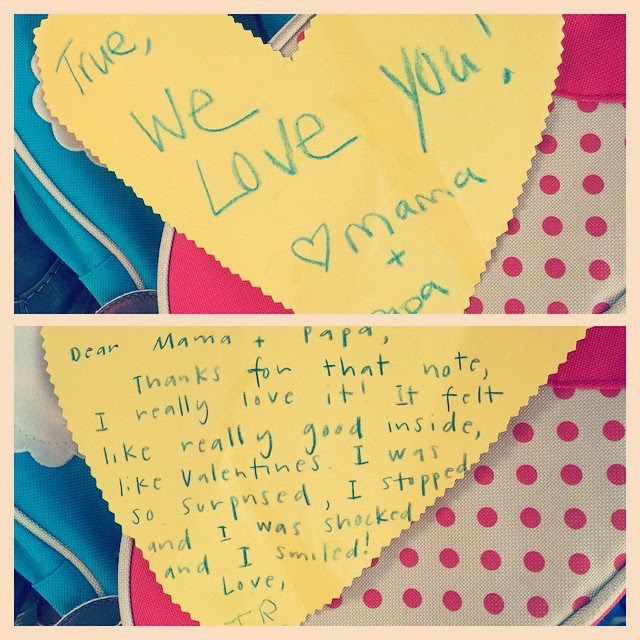 True,
We
Love You!
♡ Mama
+
Papa
Dear Mama + Papa,
Thanks for that note,
I really love it! It felt
like really good inside,
like Valentines. I was
so surprised, I stopped
and I was shocked
and I smiled!
Love,
TR